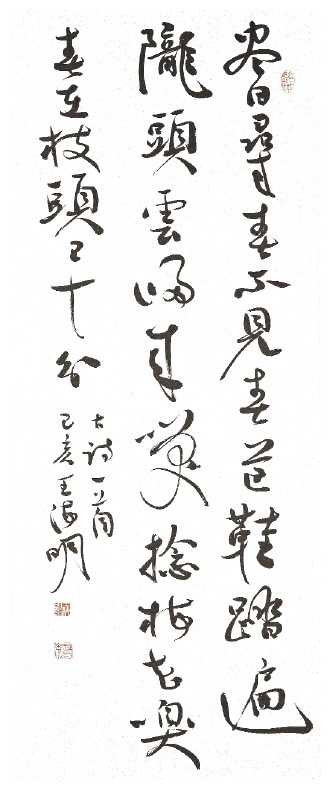 尽日尋春不見春芒鞋踏遍
隴頭雲歸来笑捻梅花嗅
春在枝頭已十分
古詩一首
己亥王海明